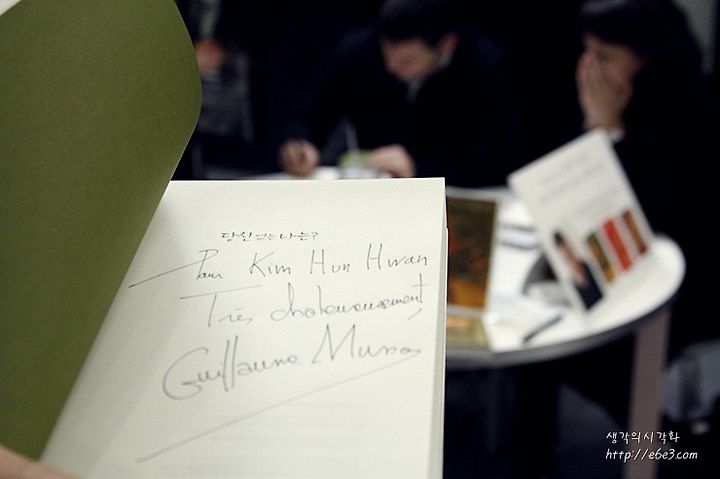 당신 없는 나는?
Pour Kim Hun Hwan
Très chaleureusement,
Guillaume Musso
생각의시각화
http://e6e3.com